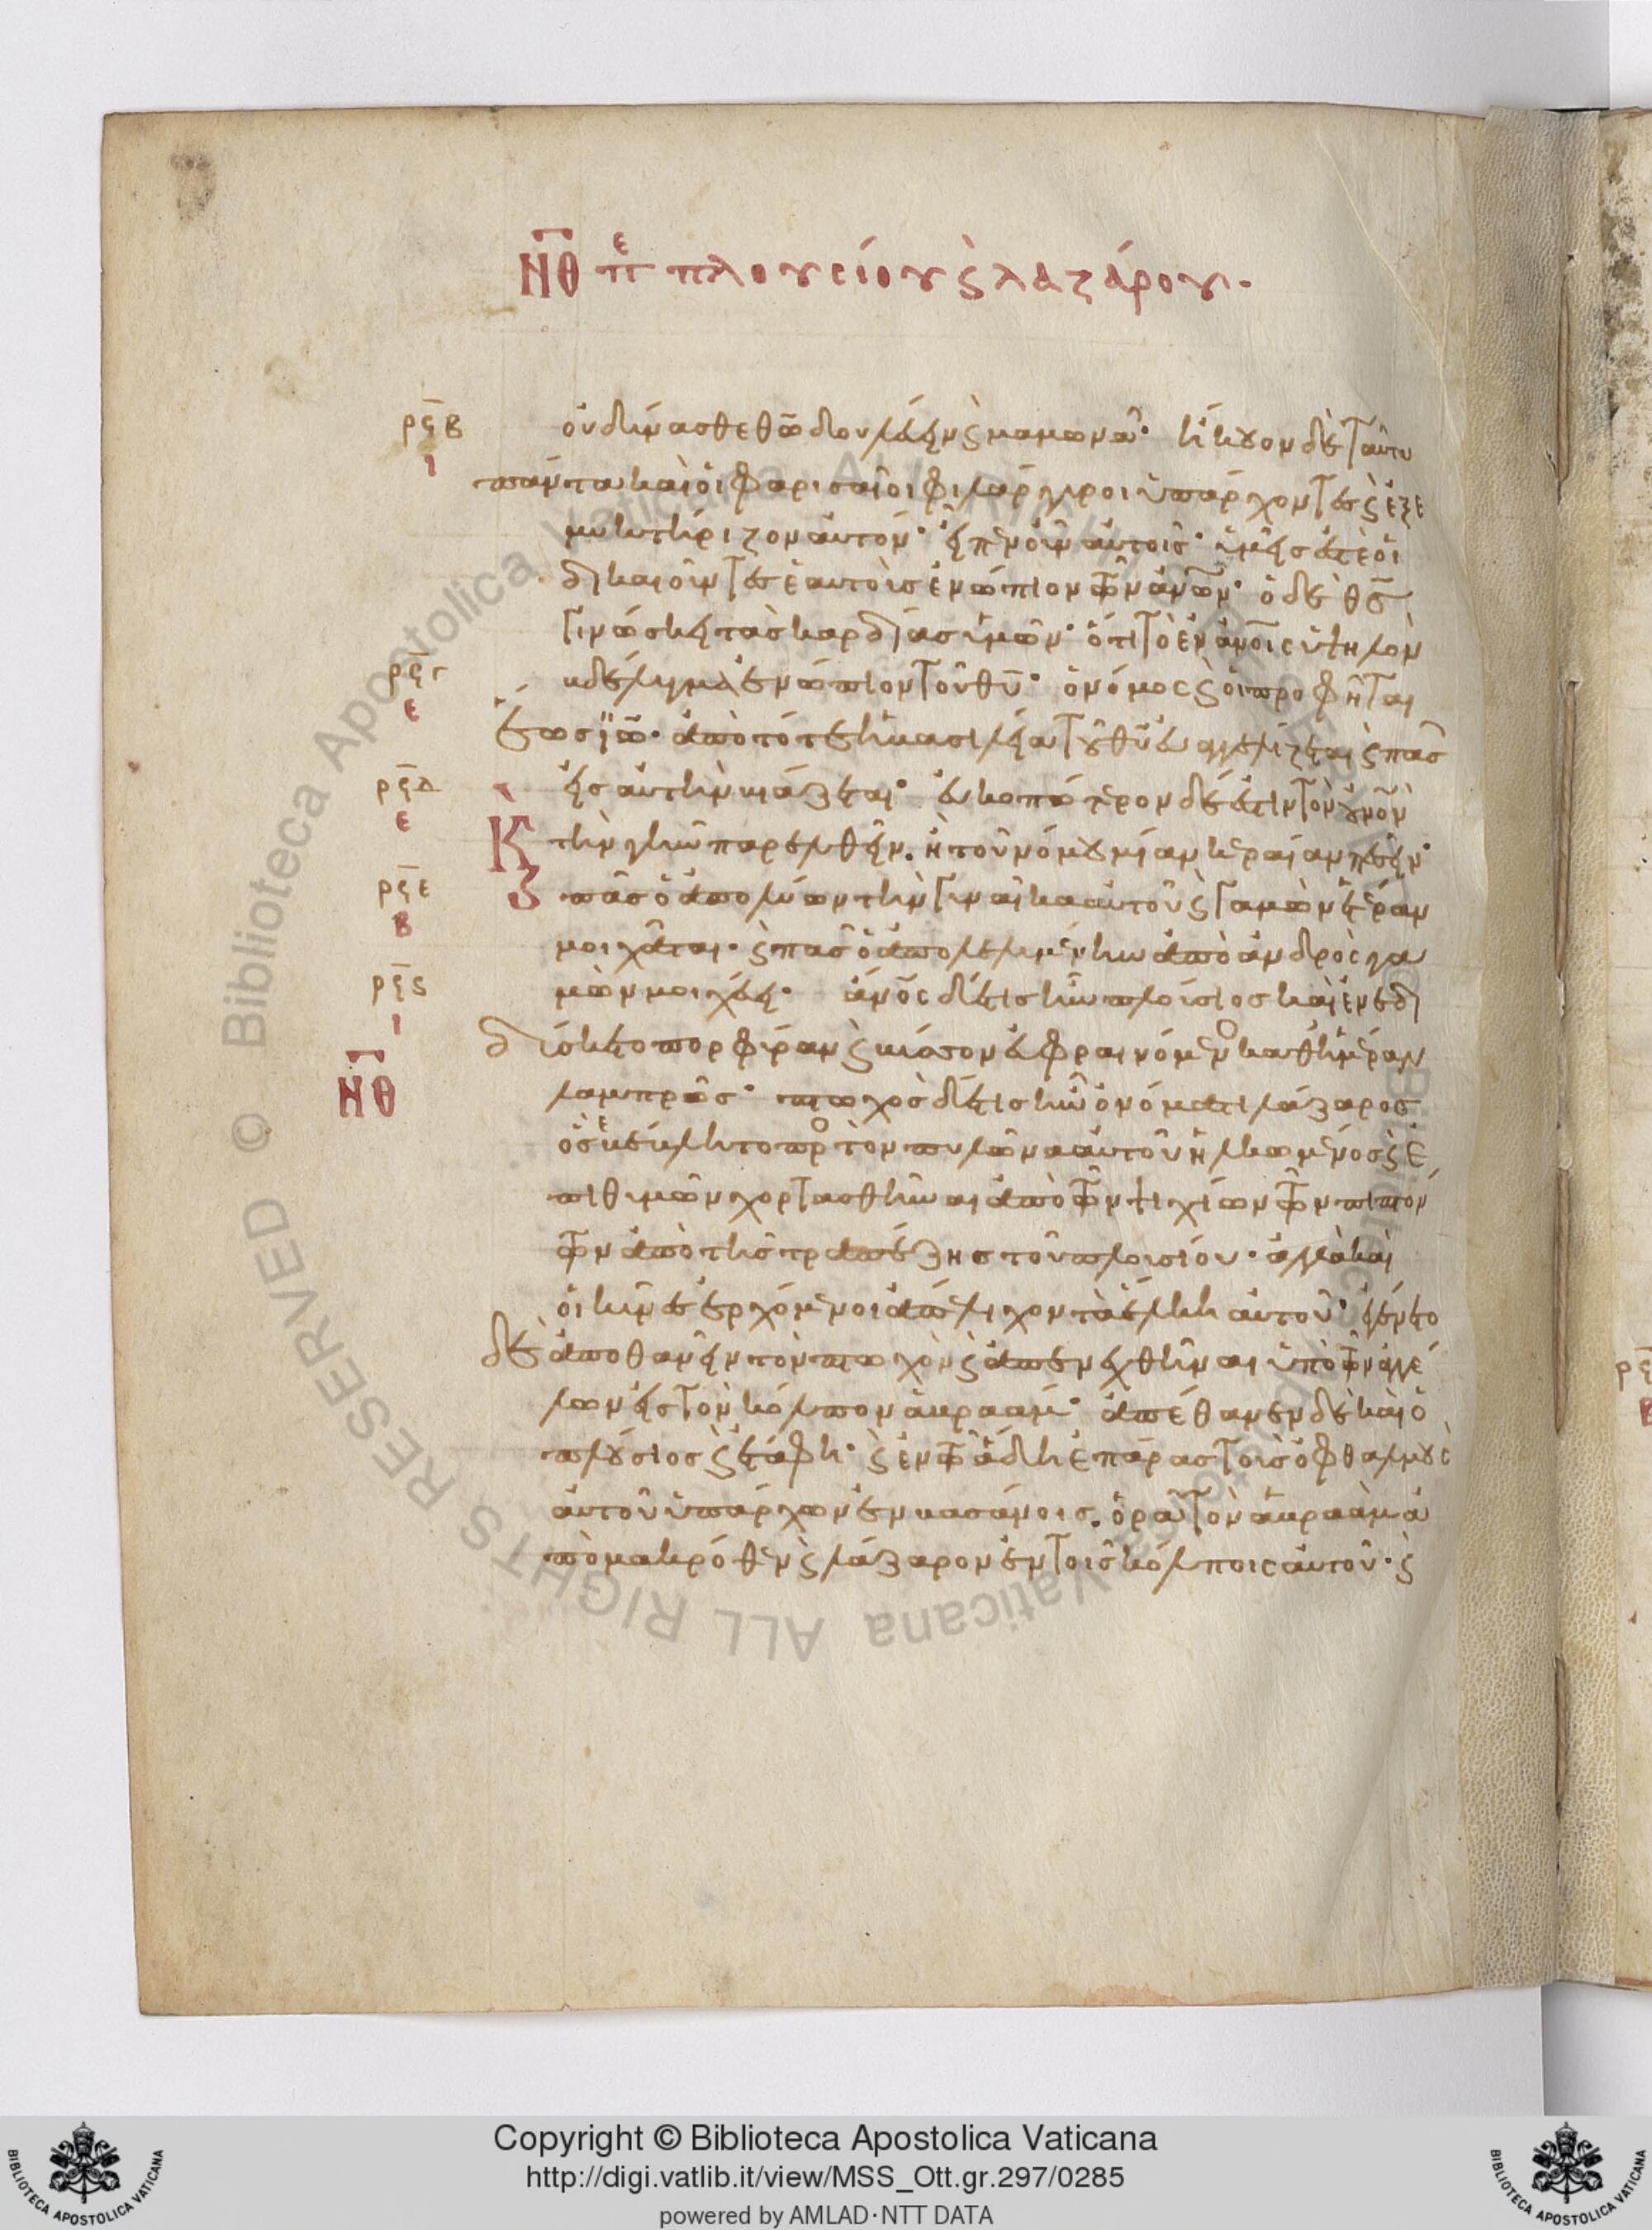 ΝΘ πε πλουσίου ϛ λαζάρου.
ρϙβ
ι
οὐ δύνασθε θῶ δουλεύειν ϛ μαμωνᾶ· ἤκουον δὲ ταῦτα
πάντα καὶ οἱ φαρισαῖοι φιλάργυροι ὑπάρχοντες ϛ ἐξε
μυκτήριζον αὐτόν· εἶπεν οὖν αὐτοῖς· ὑμεῖς ἐστὲ οἱ
δικαιοῦντες ἑαυτοὺς ἐνώπιον τῶν ἀνων· ὁ δὲ θς
γινώσκει τὰς καρδίας ὑμῶν· ὅτι τὸ ἐν ἀνοις ὑψηλὸν
ρϙγ
ε
βδέλυγμα ἐνώπιον τοῦ θυ· ὁ νόμος ϛ οἱ προφῆται
ἕως ἰω· ἀπὸ τότε ἡ βασιλεία τοῦ θυ εὐαγγελίζεται ϛ πᾶς
ρϙδ
ε
εἰς αὐτὴν βιάζεται· εὐκοπώτερον δέ ἐστιν τὸν οὐνον ϛ
Κ
τὴν γῆν παρελθεῖν. ἢ τοῦ νόμου μίαν κεραίαν πεσεῖν·
ρϙε
β
πᾶς ὁ ἀπολύων τὴν γυναῖκα αὐτοῦ ϛ γαμῶν ἑτέραν
μοιχᾶται· ϛ πᾶς ὁ ἀπολελυμένην ἀπὸ ἀνδρὸς γα
ρϙϛ
ι
μῶν μοιχεύει· ἄνος δέ τις ἦν πλούσιος καὶ ἐνεδι
διύσκετο πορφύραν ϛ βύσσον εὐφραινόμενος καθ ἡμέραν
ΝΘ
λαμπρῶς· πτωχὸς δέ τις ἦν ὀνόματι λάζαρος
ὃς ἐβέβλητο πρὸς τὸν πυλῶνα αὐτοῦ ἡλκωμένος ϛ ἐ
πιθυμῶν χορτασθῆναι ἀπὸ τῶν ψιχίων τῶν πιπτόν
των ἀπὸ τῆς τραπέζης τοῦ πλουσίου· ἀλλὰ καὶ
οἱ κύνες ἐρχόμενοι ἀπέλειχον τὰ ἕλκη αὐτοῦ· ἐγένετο
δὲ ἀποθανεῖν τὸν πτωχὸν ϛ ἀπενεχθῆναι ὑπὸ τῶν ἀγγέ
λων εἰς τὸν κόλπον ἀβραάμ· ἀπέθανεν δὲ καὶ ὁ
πλούσιος ϛ ἐτάφη· ϛ ἐν τῶ ἅδη ἐπάρας τοὺς ὀφθαλμοὺς
αὐτοῦ ὑπάρχων ἐν βασάνοις. ὁρᾶ τὸν ἀβραὰμ ἀ
πὸ μακρόθεν ϛ λάζαρον ἐν τοῖς κόλποις αὐτοῦ· ϛ
© Biblioteca Apostolica Vaticana ALL RIGHTS RESERVED
Copyright © Biblioteca Apostolica Vaticana
http://digi.vatlib.it/view/MSS_Ott.gr.297/0285
powered by AMLAD·NTT DATA
BIBLIOTECA APOSTOLICA VATICANA
BIBLIOTECA APOSTOLICA VATICANA